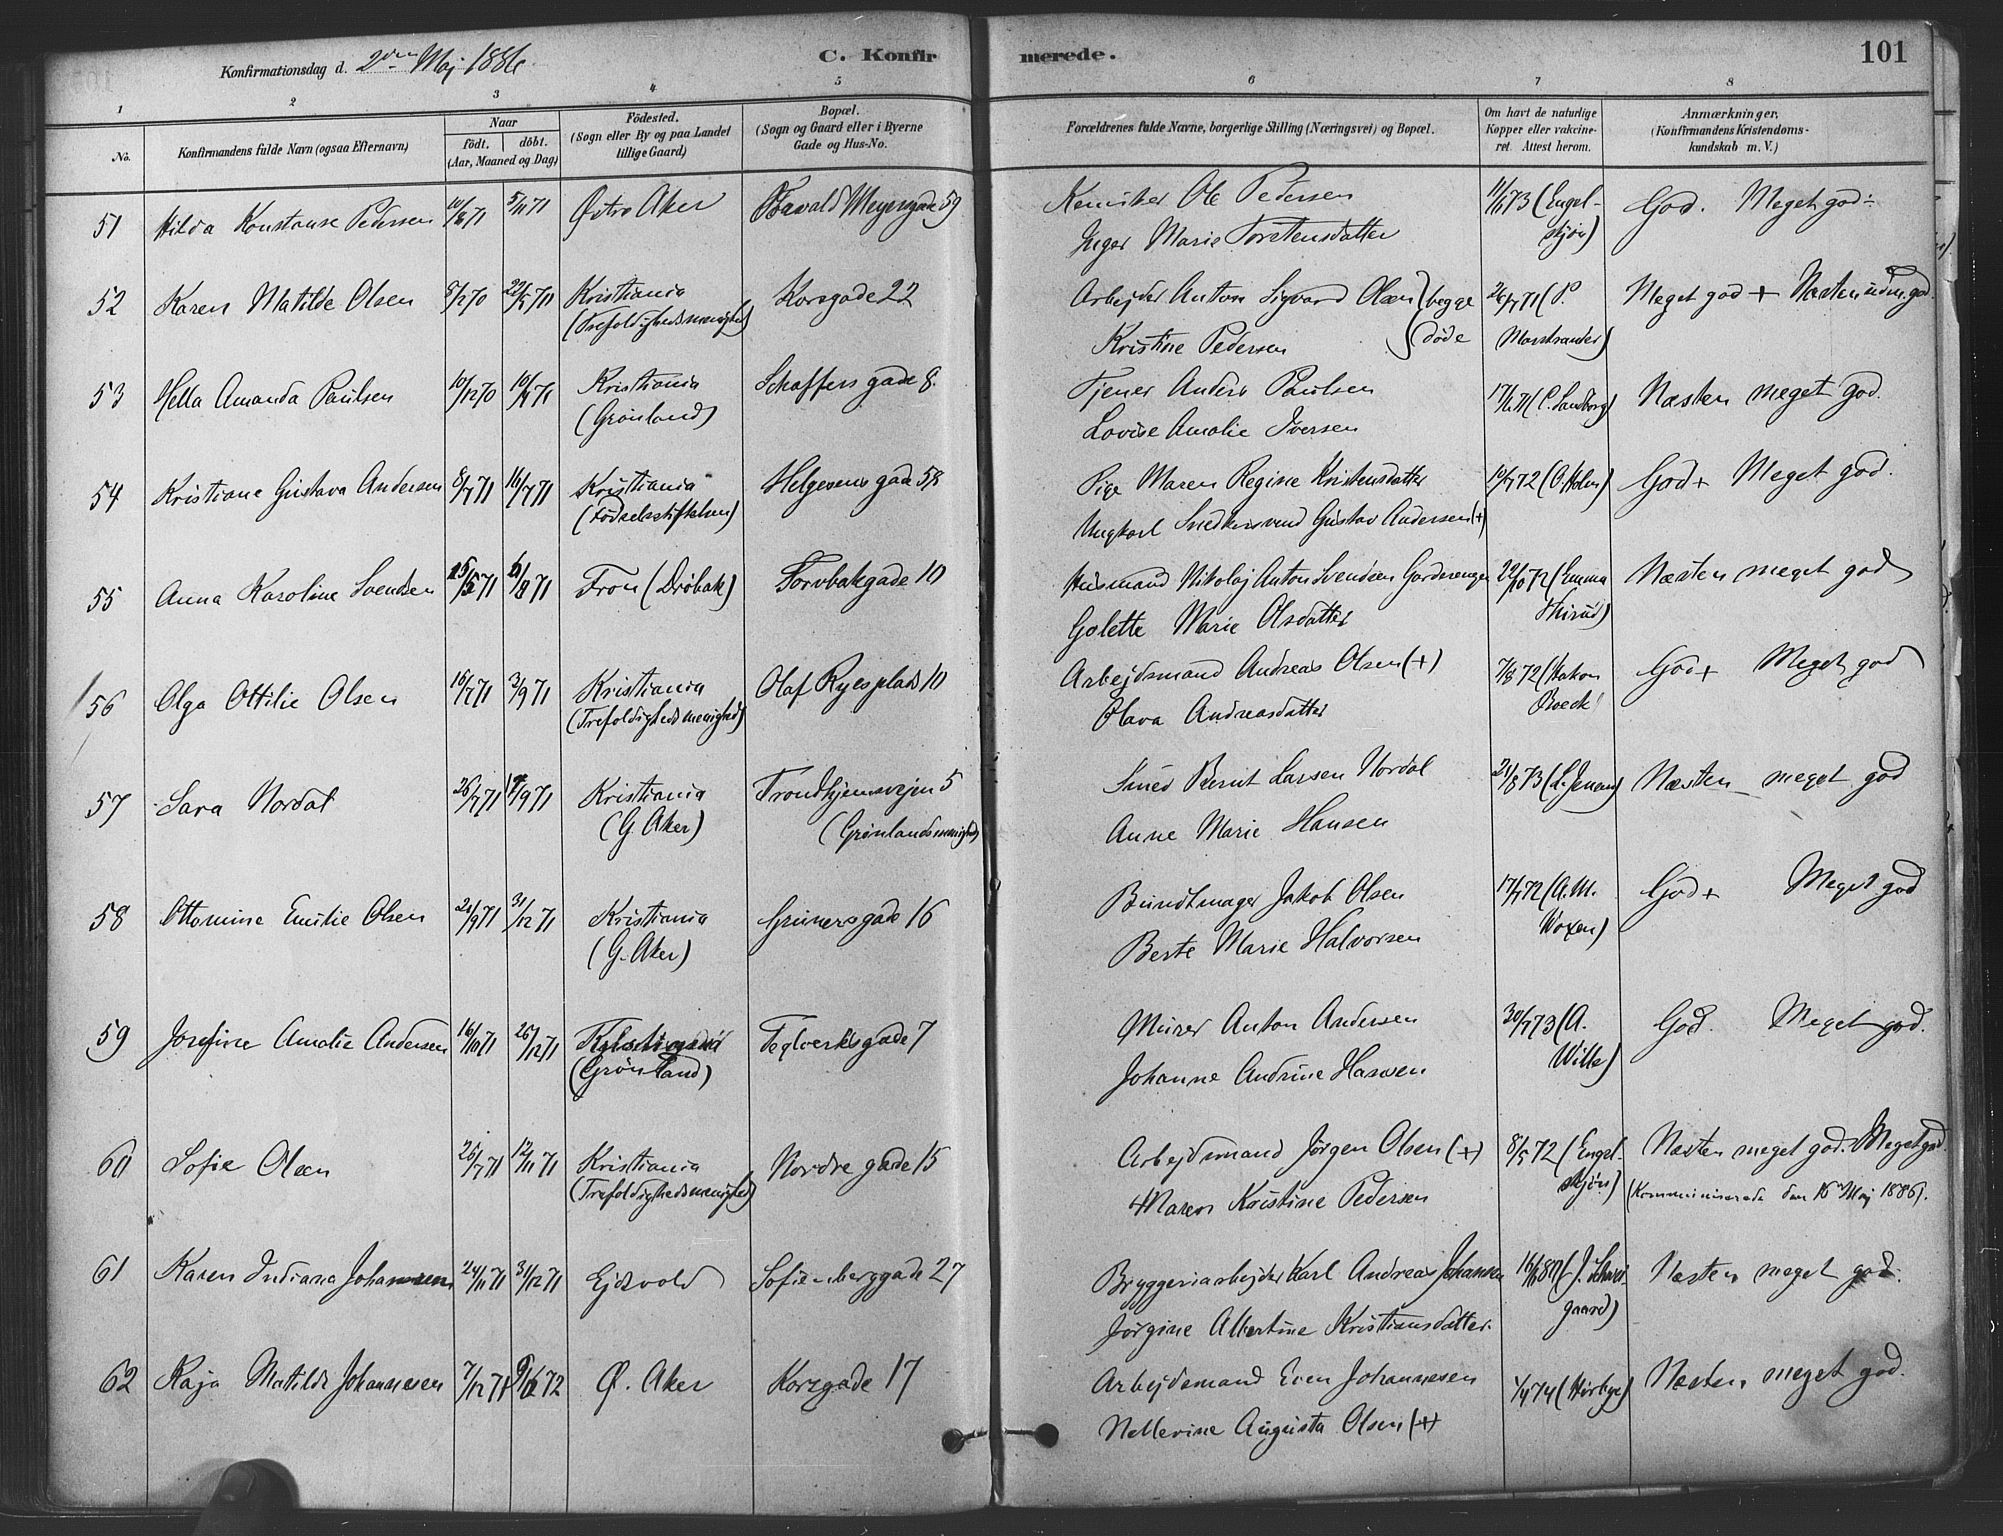 Konfirmationsdag d. 2den Maj 1886 C. Konfirmerede. 101
1 2 3 4 5 6 7 8
No. Konfirmandens fulde Navn (ogsaa Efternavn) Naar födt. döbt. (Aar, Maaned og Dag) Födested. (Sogn eller By og paa Landet tillige Gaard) Bopæl. (Sogn og Gaard eller i Byerne Gade og Hus-No. Forældrenes fulde Navne, borgerlige Stilling (Næringsvei) og Bopæl. Om havt de naturlige Kopper eller vakcineret. Attest herom. Anmærkninger, (Konfirmandens Kristendomskundskab m. V.)
51 Hilda Konstanse Pedersen 5/11 71 Østre Aker Thorvald Meyersgade 59 Ole Pedersen 73 (Engelskjøn) God. Meget god
Inger Marie Torstensdatter
52 Karen Matilde Olsen 8/2 70 22/5 70 Kristiania Korsgade 22 Arbejder Anton Sigvard Olsen (begge 26/7 71 (P. Meget god + Næsten udm. god.
(Trefoldighedsmenighed) Kristine Pedersen døde Marstrander)
53 Hella Amanda Paulsen 10/12 70 10/4 71 Kristiania Schaffers gade 8. Tjener Anders Paulsen (C. Sandberg) Næsten meget god.
(Grønland) Lovise Amalie Iversen
54 Kristiane Gustava Andersen 8/7 71 16/7 71 Kristiania Helgesens gade 58 Pige Maren Regine Kristensdatter 72 (O. Holm) God + Meget god.
(Fødselsstiftelsen) Ungkarl Snedkersvend Gustav Andersen (+)
55 Anna Karoline Svendsen 25/5 71 6/8 71 Fron (Drøbak) Torvbakgade 10 Husmand Nikolaj Anton Svendsen Gardmengen 22/10 72 (Emma Næsten meget god
Golette Marie Olsdatter
56 Olga Ottilie Olsen 16/7 71 3/9 71 Kristiania Olaf Ryes plads 10 Arbejdsmand Andreas Olsen (+) 7/8 72 (Hakon God + Meget god
(Trefoldighedsmenighed) Olava Andreasdatter Boeck)
57 Sara Nordal 26/7 71 17/9 71 Kristiania Trondhjemsvejen 5 Smed Bernt Larsen Nordal 21/8 73 (L. Jensen) Næsten meget god
(G. Aker) (Grønlandsmenighed) Anne Marie Hansen
58 Ottomine Emilie Olsen 21/9 71 31/12 71 Kristiania Grünersgade 16 Bundtmager Jakob Olsen 17/7 72 (A.M. God + Meget god
(G. Aker) Berte Marie Halvorsen Woxen)
59 Josefine Amalie Andersen 16/10 71 26/12 71 Kristiania Teglverksgade 7 Murer Anton Andersen 30/7 73 (A. God. Meget god.
(Grønland) Johanne Andrine Hansen Wille)
60 Sofie Olsen 25/7 71 12/11 71 Kristiania Nordre gade 15 Arbejdsmand Jørgen Olsen (+) 8/5 72 (Engel- Næsten meget god. Meget god.
(Trefoldighedsmenighed) Maren Kristine Pedersen skjøn) (Kommuniserede den 16de Maj 1886).
61 Karen Indiana Johannesen 24/11 71 31/12 71 Ejdsvold Sofienberggade 27 Bryggeriarbejder Karl Andreas Johansen (J. Schwei- Næsten meget god.
Jørgine Albertine Kristiansdatter. gaard)
62 Kaja Matilde Johannesen 7/12 71 72 Ø. Aker Korsgade 17 Arbejdsmand Even Johannesen 74 (Hørbye) Næsten meget god.
Nellevine Augusta Olsen (+)